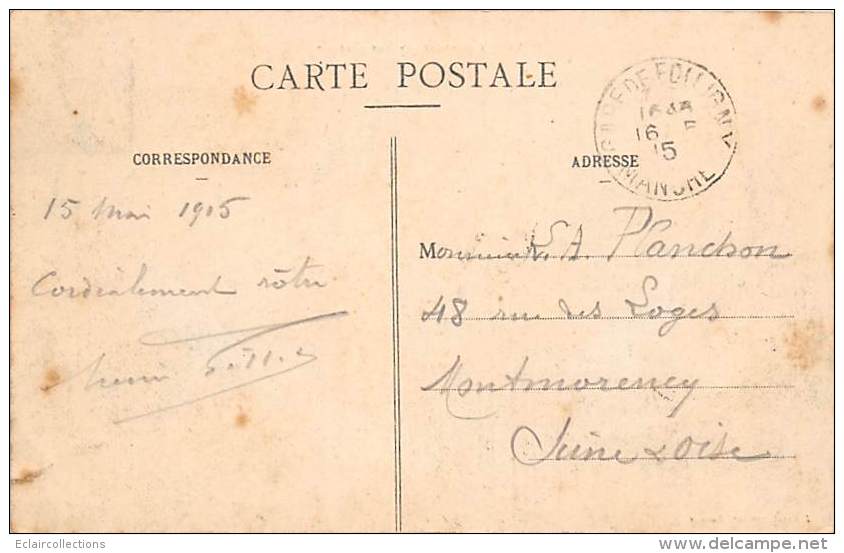 CARTE POSTALE
CORRESPONDANCE
ADRESSE
GARE DE FOLLIGNY
16
15
MANCHE
15 Mai 1915
Cordialement vôtre
Henri
M A. Planchon
48 rue des Loges
Montmorency
Seine & Oise
Eclaircollections
www.delcampe.net